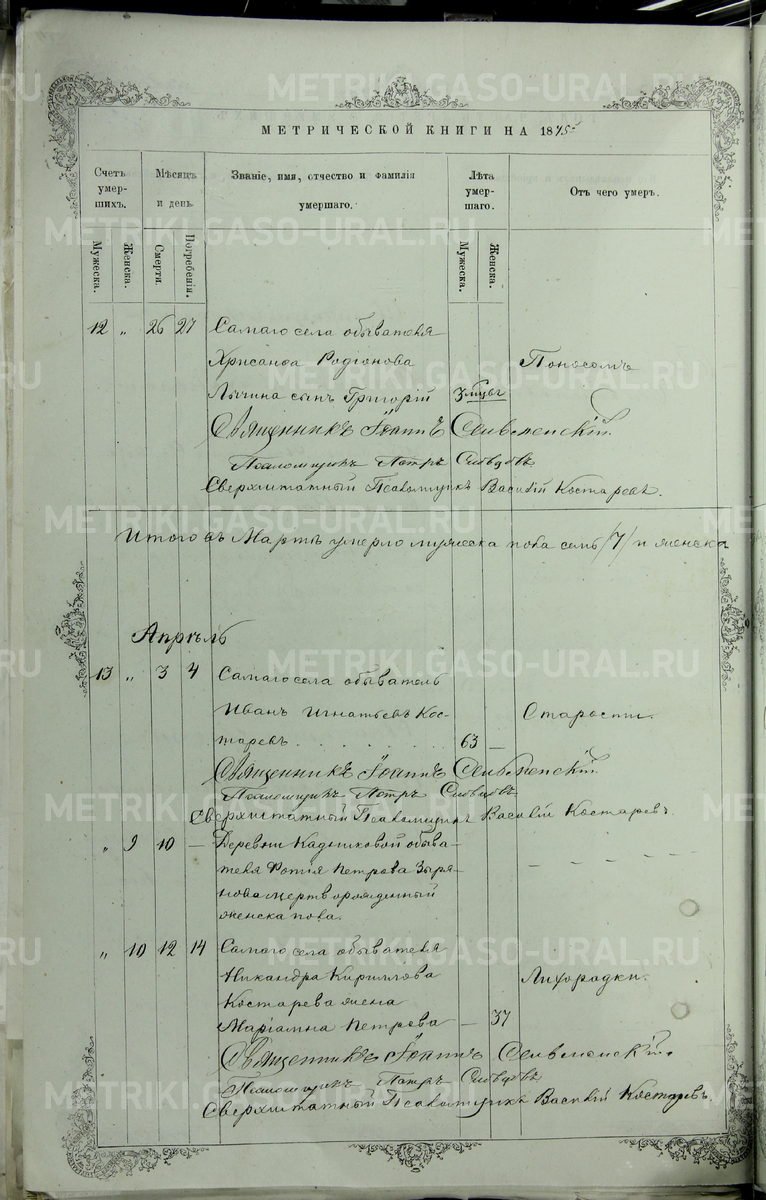 МЕТРИЧЕСКОЙ КНИГИ НА 1875
Счетъ умершихъ.
Мужеска.
Женска.
Мѣсяцъ и день.
Смерти.
Погребенія.
Званіе, имя, отчество и фамилія умершаго.
Лѣта умершаго.
Мужеска.
Женска.
Отъ чего умеръ.
12 „ 26 27 Самаго села обывателя
Хрисанѳа Родіонова Поносомъ
сынъ Григорій 3 мѣсц
Священникъ Іоаннъ
Псаломщикъ Петръ
Сверхштатный Псаломщикъ Василій Костаревъ.
Итого въ Мартѣ умерло мужеска пола семь /7/ и женска
Апрѣль
13 „ 3 4 Самаго села обыватель
Иванъ Игнатьевъ Кос- Старости.
таревъ 63 —
Священникъ Іоаннъ
Псаломщикъ Петръ
Сверхштатный Псаломщикъ Василій Костаревъ.
„ 9 10 — Деревни Кадниковой обыва-
теля Фотія Петрова Зыря- — — — —
нова мертворожденный
женска пола.
„ 10 12 14 Самаго села обывателя
Никандра Кириллова Лихорадки.
Костарева жена
Маріамна Петрова — 37
Священникъ Іоаннъ
Псаломщикъ Петръ
Сверхштатный Псаломщикъ Василій Костаревъ.
METRIKI.GASO-URAL.RU